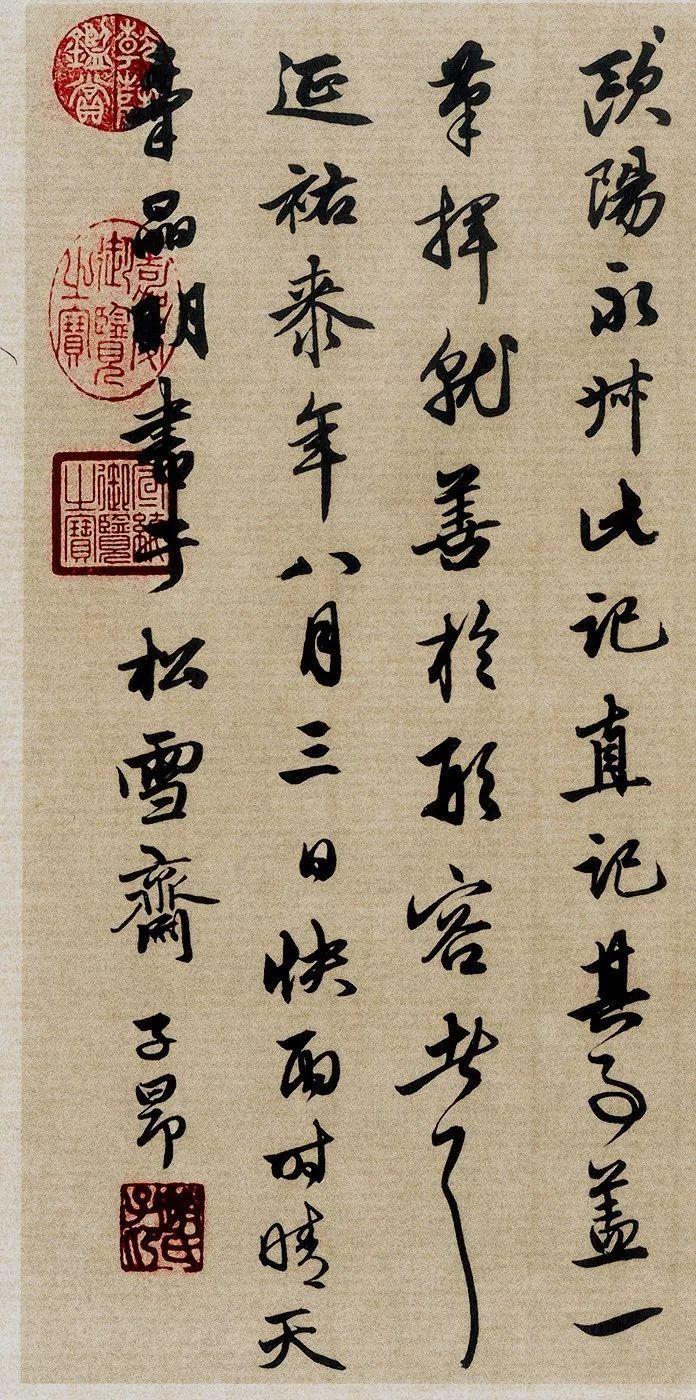 歐陽永叔此記直記其事蓋一
筆揮就善於形容者耳
延祐柒年八月三日快雨時晴天
晶明書于松雪齋 子昂
乾隆鑑賞
嘉慶御覽之寶
宣統御覽之寶
趙氏子昂